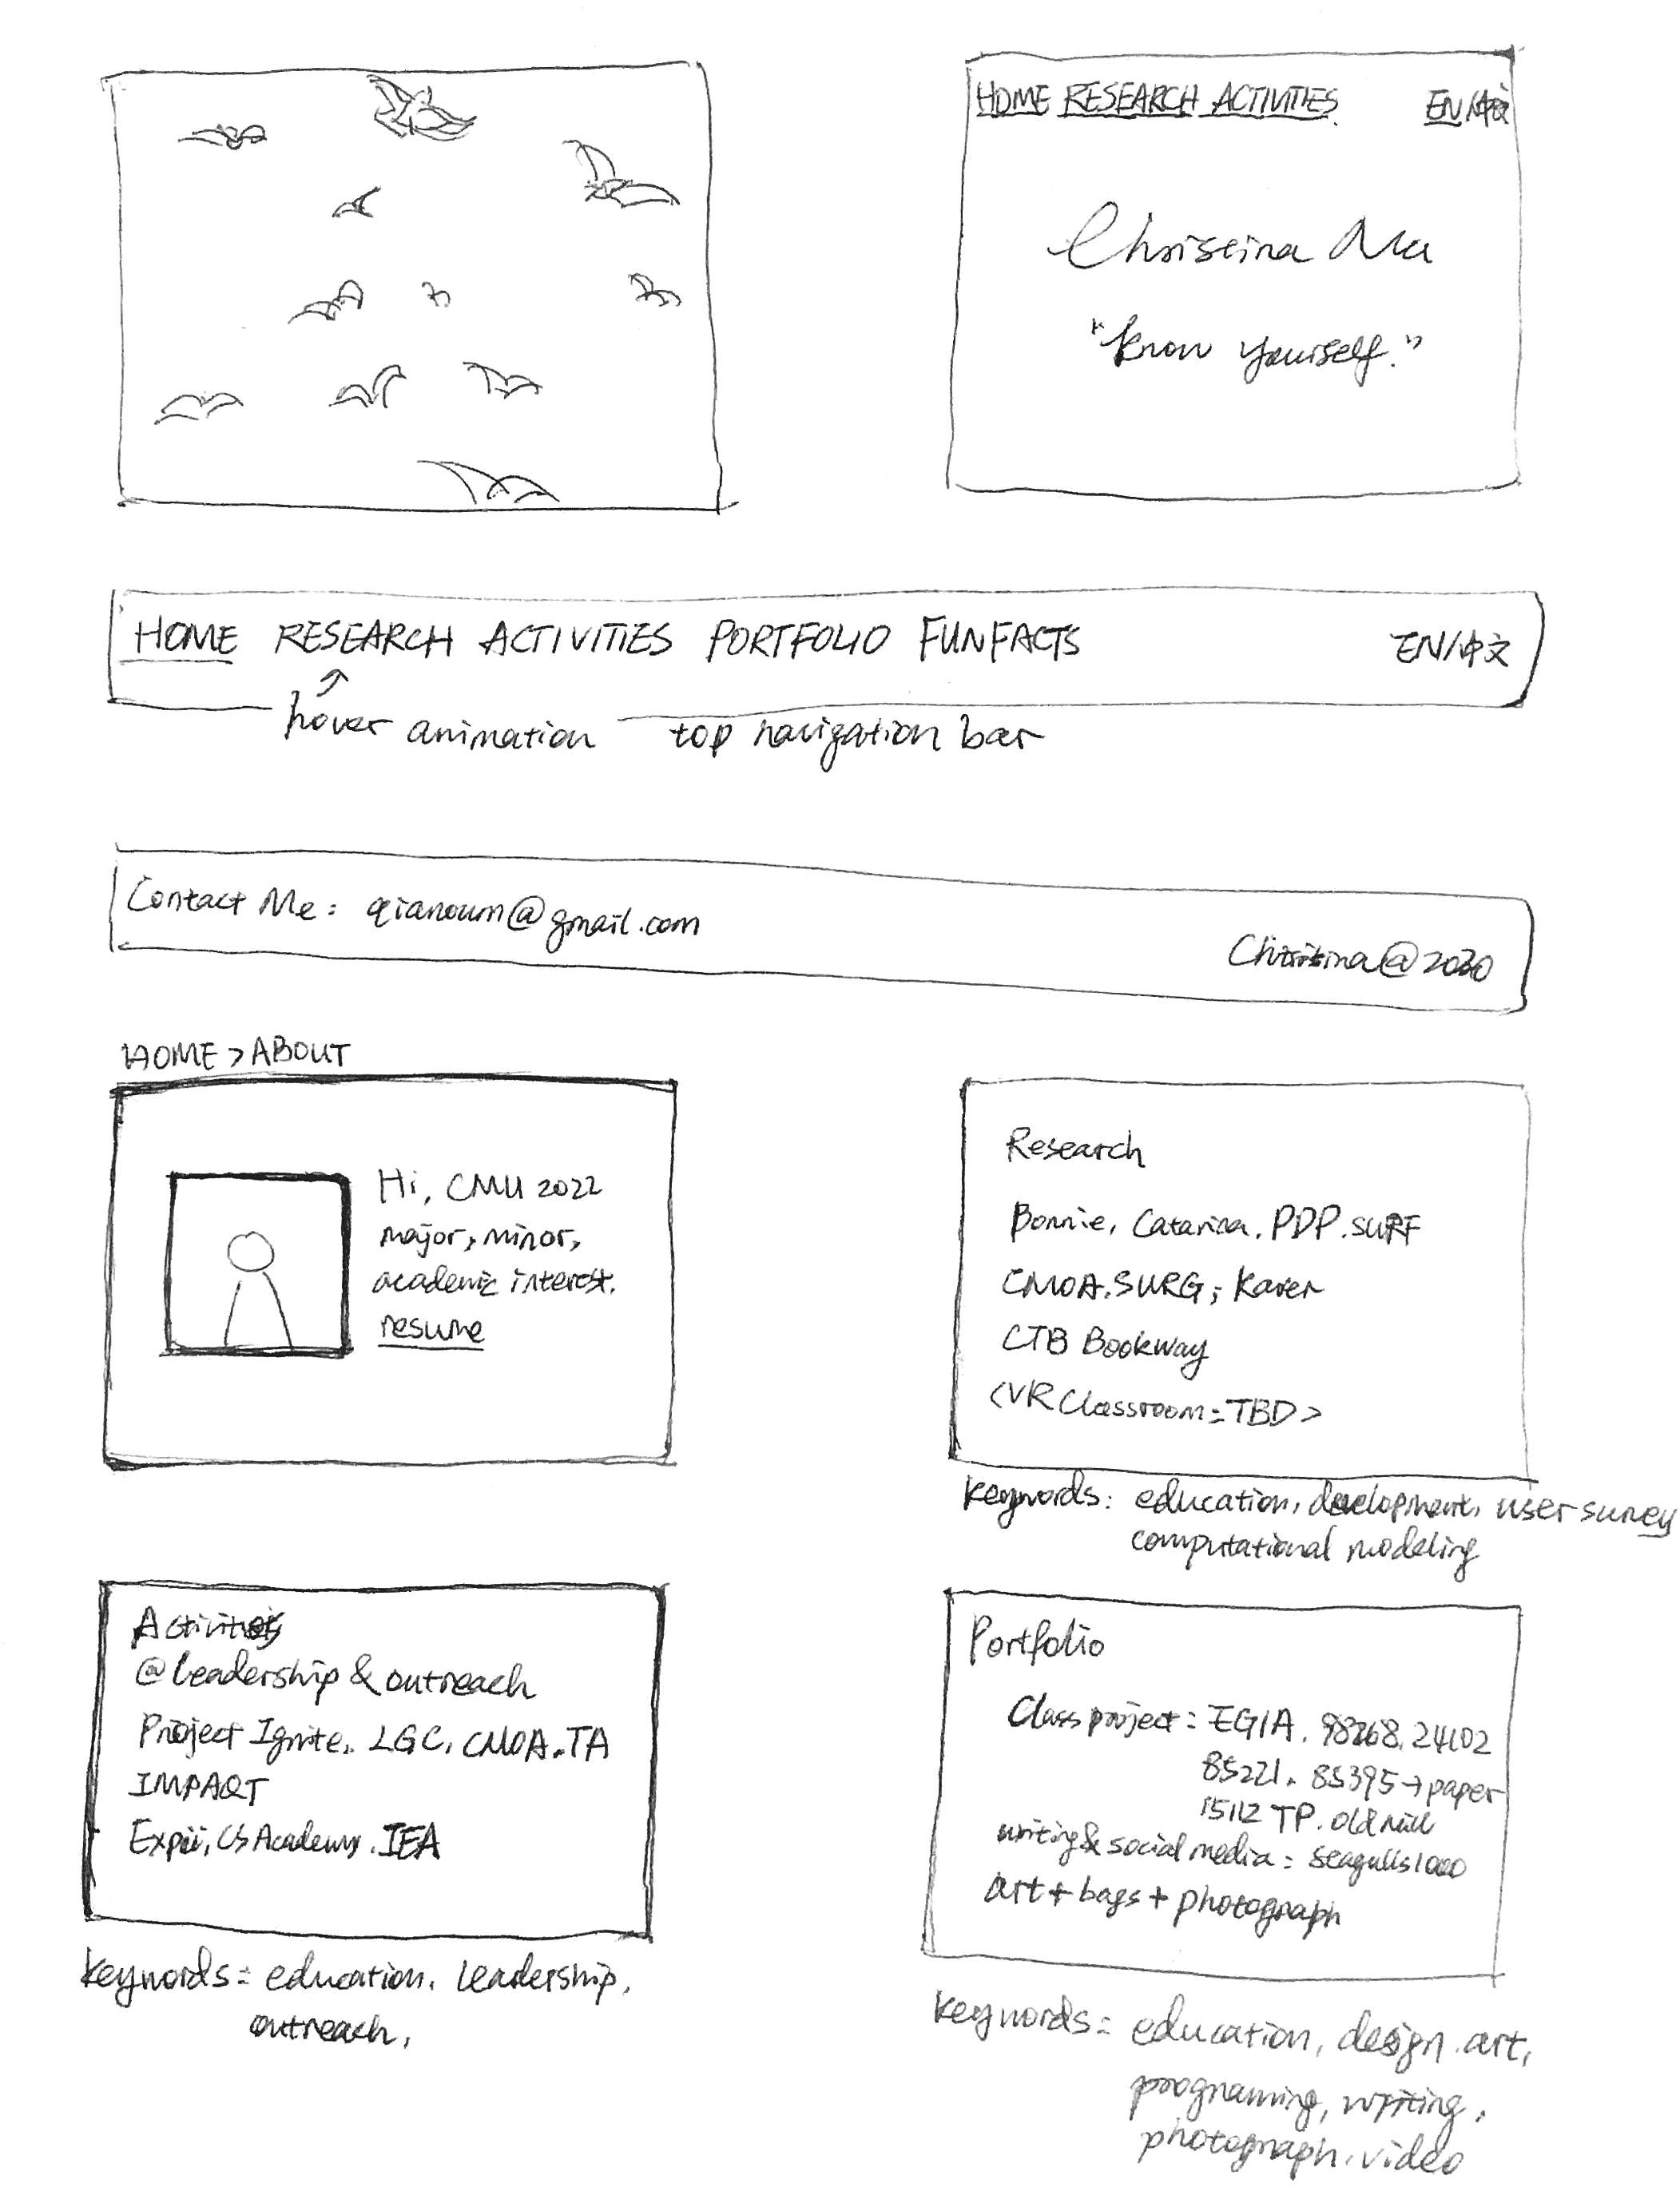 HOME RESEARCH ACTIVITIES EN/中文
Christina Ma
"know yourself."
HOME RESEARCH ACTIVITIES PORTFOLIO FUNFACTS EN/中文
hover animation
top navigation bar
Contact Me: qianoum@gmail.com
Christina@2020
HOME > ABOUT
Hi, CMU 2022
major, minor,
academic interest.
resume
Research
Bonnie, Catarina. PDP. SURF
CMOA. SURG; Karen
CTB Bookway
<VR Classroom: TBD>
keywords: education, development, user survey
computational modeling
Activities
@leadership & outreach
Project Ignite. LGC, CMOA. TA
IMPAQT
Expii, CS Academy. IEA
keywords: education. leadership,
outreach,
Portfolio
Class project: EGIA. 98268. 24102
85221. 85395 → paper
15112 TP. old
writing & social media: seagulls1000
art + bags + photograph
keywords: education, design. art,
programing, writing,
photograph. video